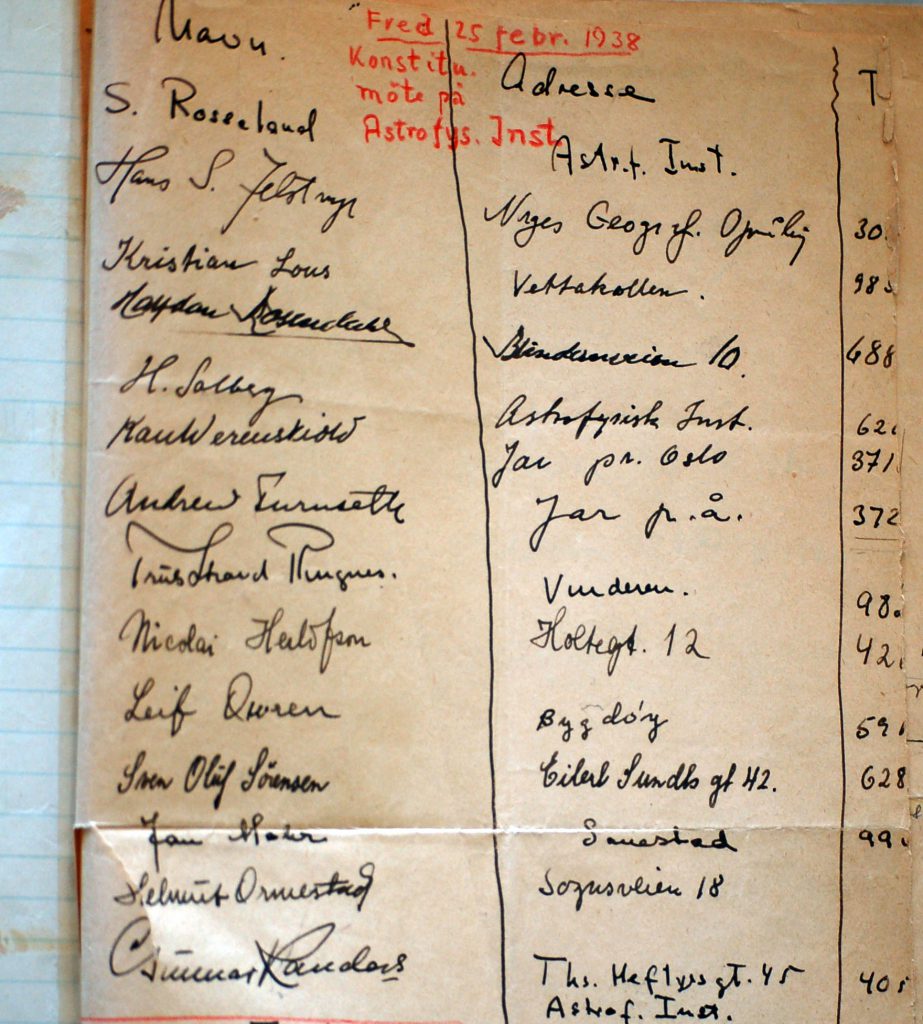 Navn. Fred 25 febr. 1938
Konstitu.
möte på
Astrofys. Inst.
Adresse T
S. Rosseland Astr.f. Inst.
Hans S. Jelstrup Nrges Geogrf. Opmålig 30
Kristian Lous Vettakollen. 98
Halfdan Rosendahl Blindernveien 10. 688
H. Solberg Astrofysisk Inst. 62
Werenskiold Jar pr. Oslo 371
Andrew Furuseth Jar p.å. 372
Truls Strand Ringnes. Vinderen. 98.
Nicolai Herlofson Holtegt. 12 42.
Leif Owren Bygdöy 59
Sven Oluf Sörensen Eilert Sundts gt 42. 628
Jan 99
Helmut Ormestad Sognsveien 18
Gunnar Randers Ths. Heftyes gt. 45 40
Astrof. Inst.